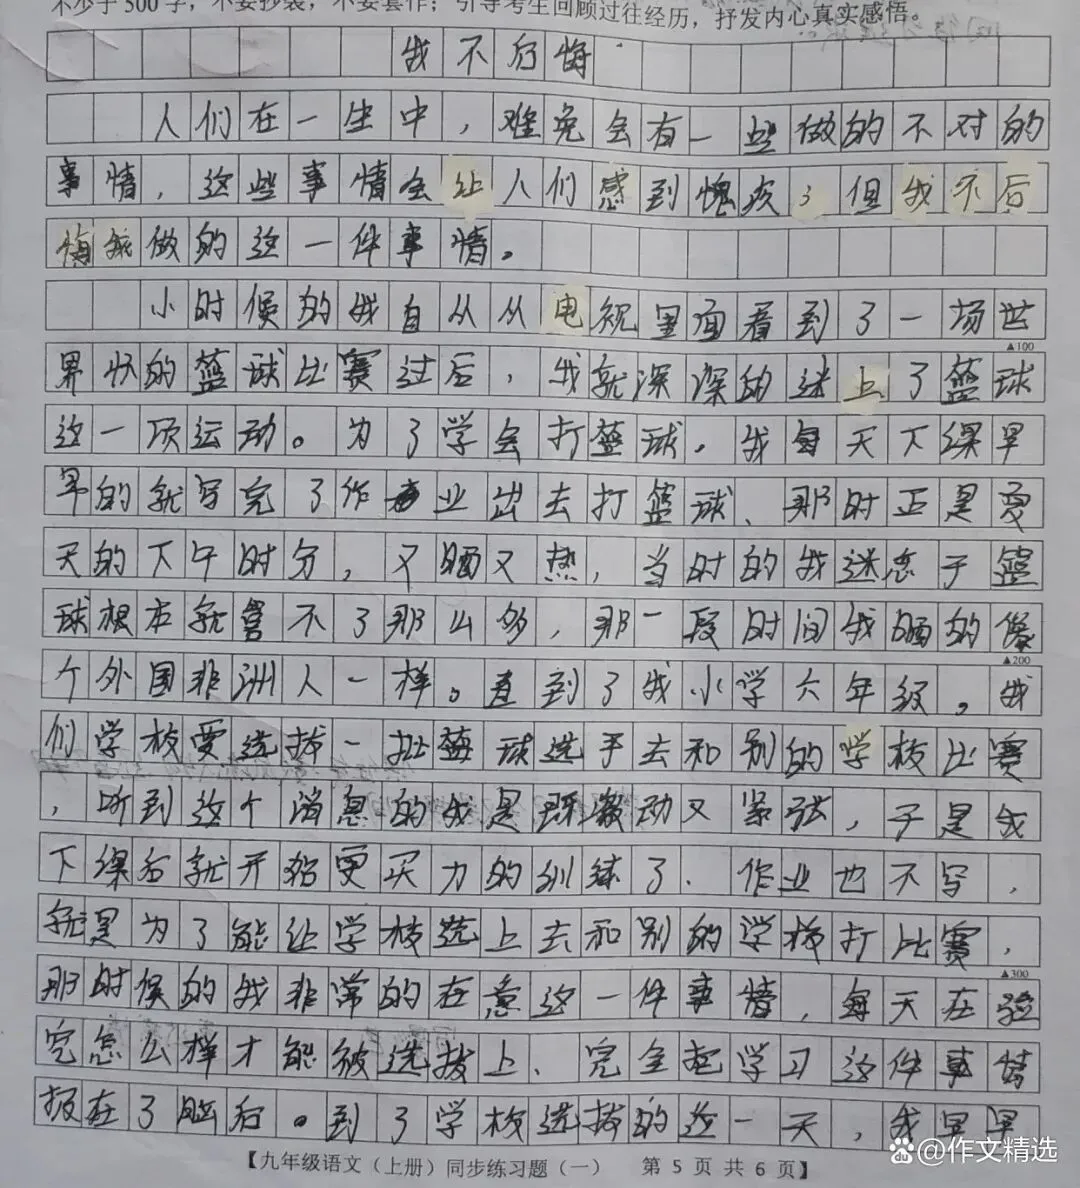 不少于500字，不要抄袭，不要套作；引导考生回顾过往经历，抒发内心真实感悟。
我不后悔
人们在一生中，难免会有一些做的不对的
事情，这些事情会让人们感到愧疚，但我不后
悔我做的这一件事情。
小时候的我自从从电视里面看到了一场世
▲100
界杯的篮球比赛过后，我就深深的迷上了篮球
这一项运动。为了学会打篮球，我每天下课早
早的就写完了作业出去打篮球、那时正是夏
天的下午时分，又晒又热，当时的我迷恋于篮
球根本就管不了那么多，那一段时间我晒的像
▲200
个外国非洲人一样。直到了我小学六年级，我
们学校要选拔一批篮球选手去和别的学校比赛
，听到这个消息的我是既激动又紧张，于是我
下课后就开始更买力的训练了、作业也不写，
就是为了能让学校选上去和别的学校打比赛，
▲300
那时候的我非常的在意这一件事情，每天在
究怎么样才能被选拔上、完全把学习这件事情
抛在了脑后。到了学校选拔的这一天，我早早
【九年级语文（上册）同步练习题（一） 第5页共6页】
@作文精选